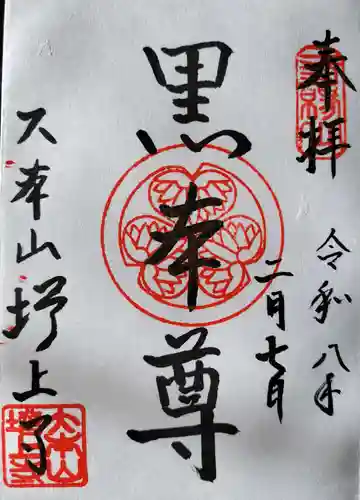 奉拝
令和八年
二月七日
黒本尊
大本山増上寺